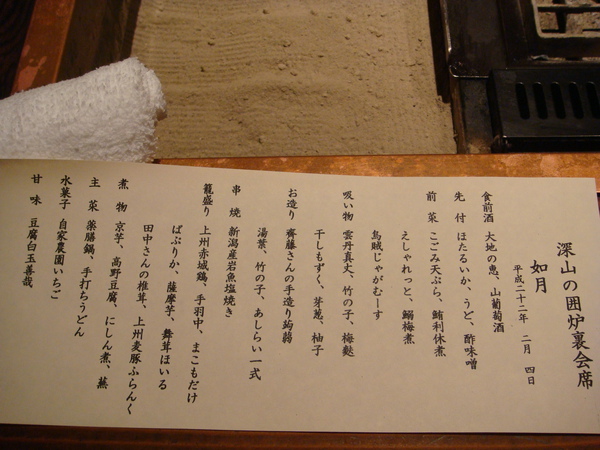 深山の囲炉裏会席
如月
平成二十二年 二月 四日
食前酒 大地の恵、山葡萄酒
先付 ほたるいか、うど、酢味噌
前菜 こごみ天ぷら、鮪利休煮
えしゃれっと、鰯梅煮
烏賊じゃがむーす
吸い物 雲丹真丈、竹の子、梅麩
干しもずく、芽葱、柚子
お造り 齊藤さんの手造り蒟蒻
湯葉、竹の子、あしらい一式
串焼 新潟産岩魚塩焼き
籠盛り 上州赤城鶏、手羽中、まこもだけ
ぱぷりか、薩摩芋、舞茸ほいる
田中さんの椎茸、上州麦豚ふらんく
煮物 京芋、高野豆腐、にしん煮、蕪
主菜 薬膳鍋、手打ちうどん
水菓子 自家農園いちご
甘味 豆腐白玉善哉